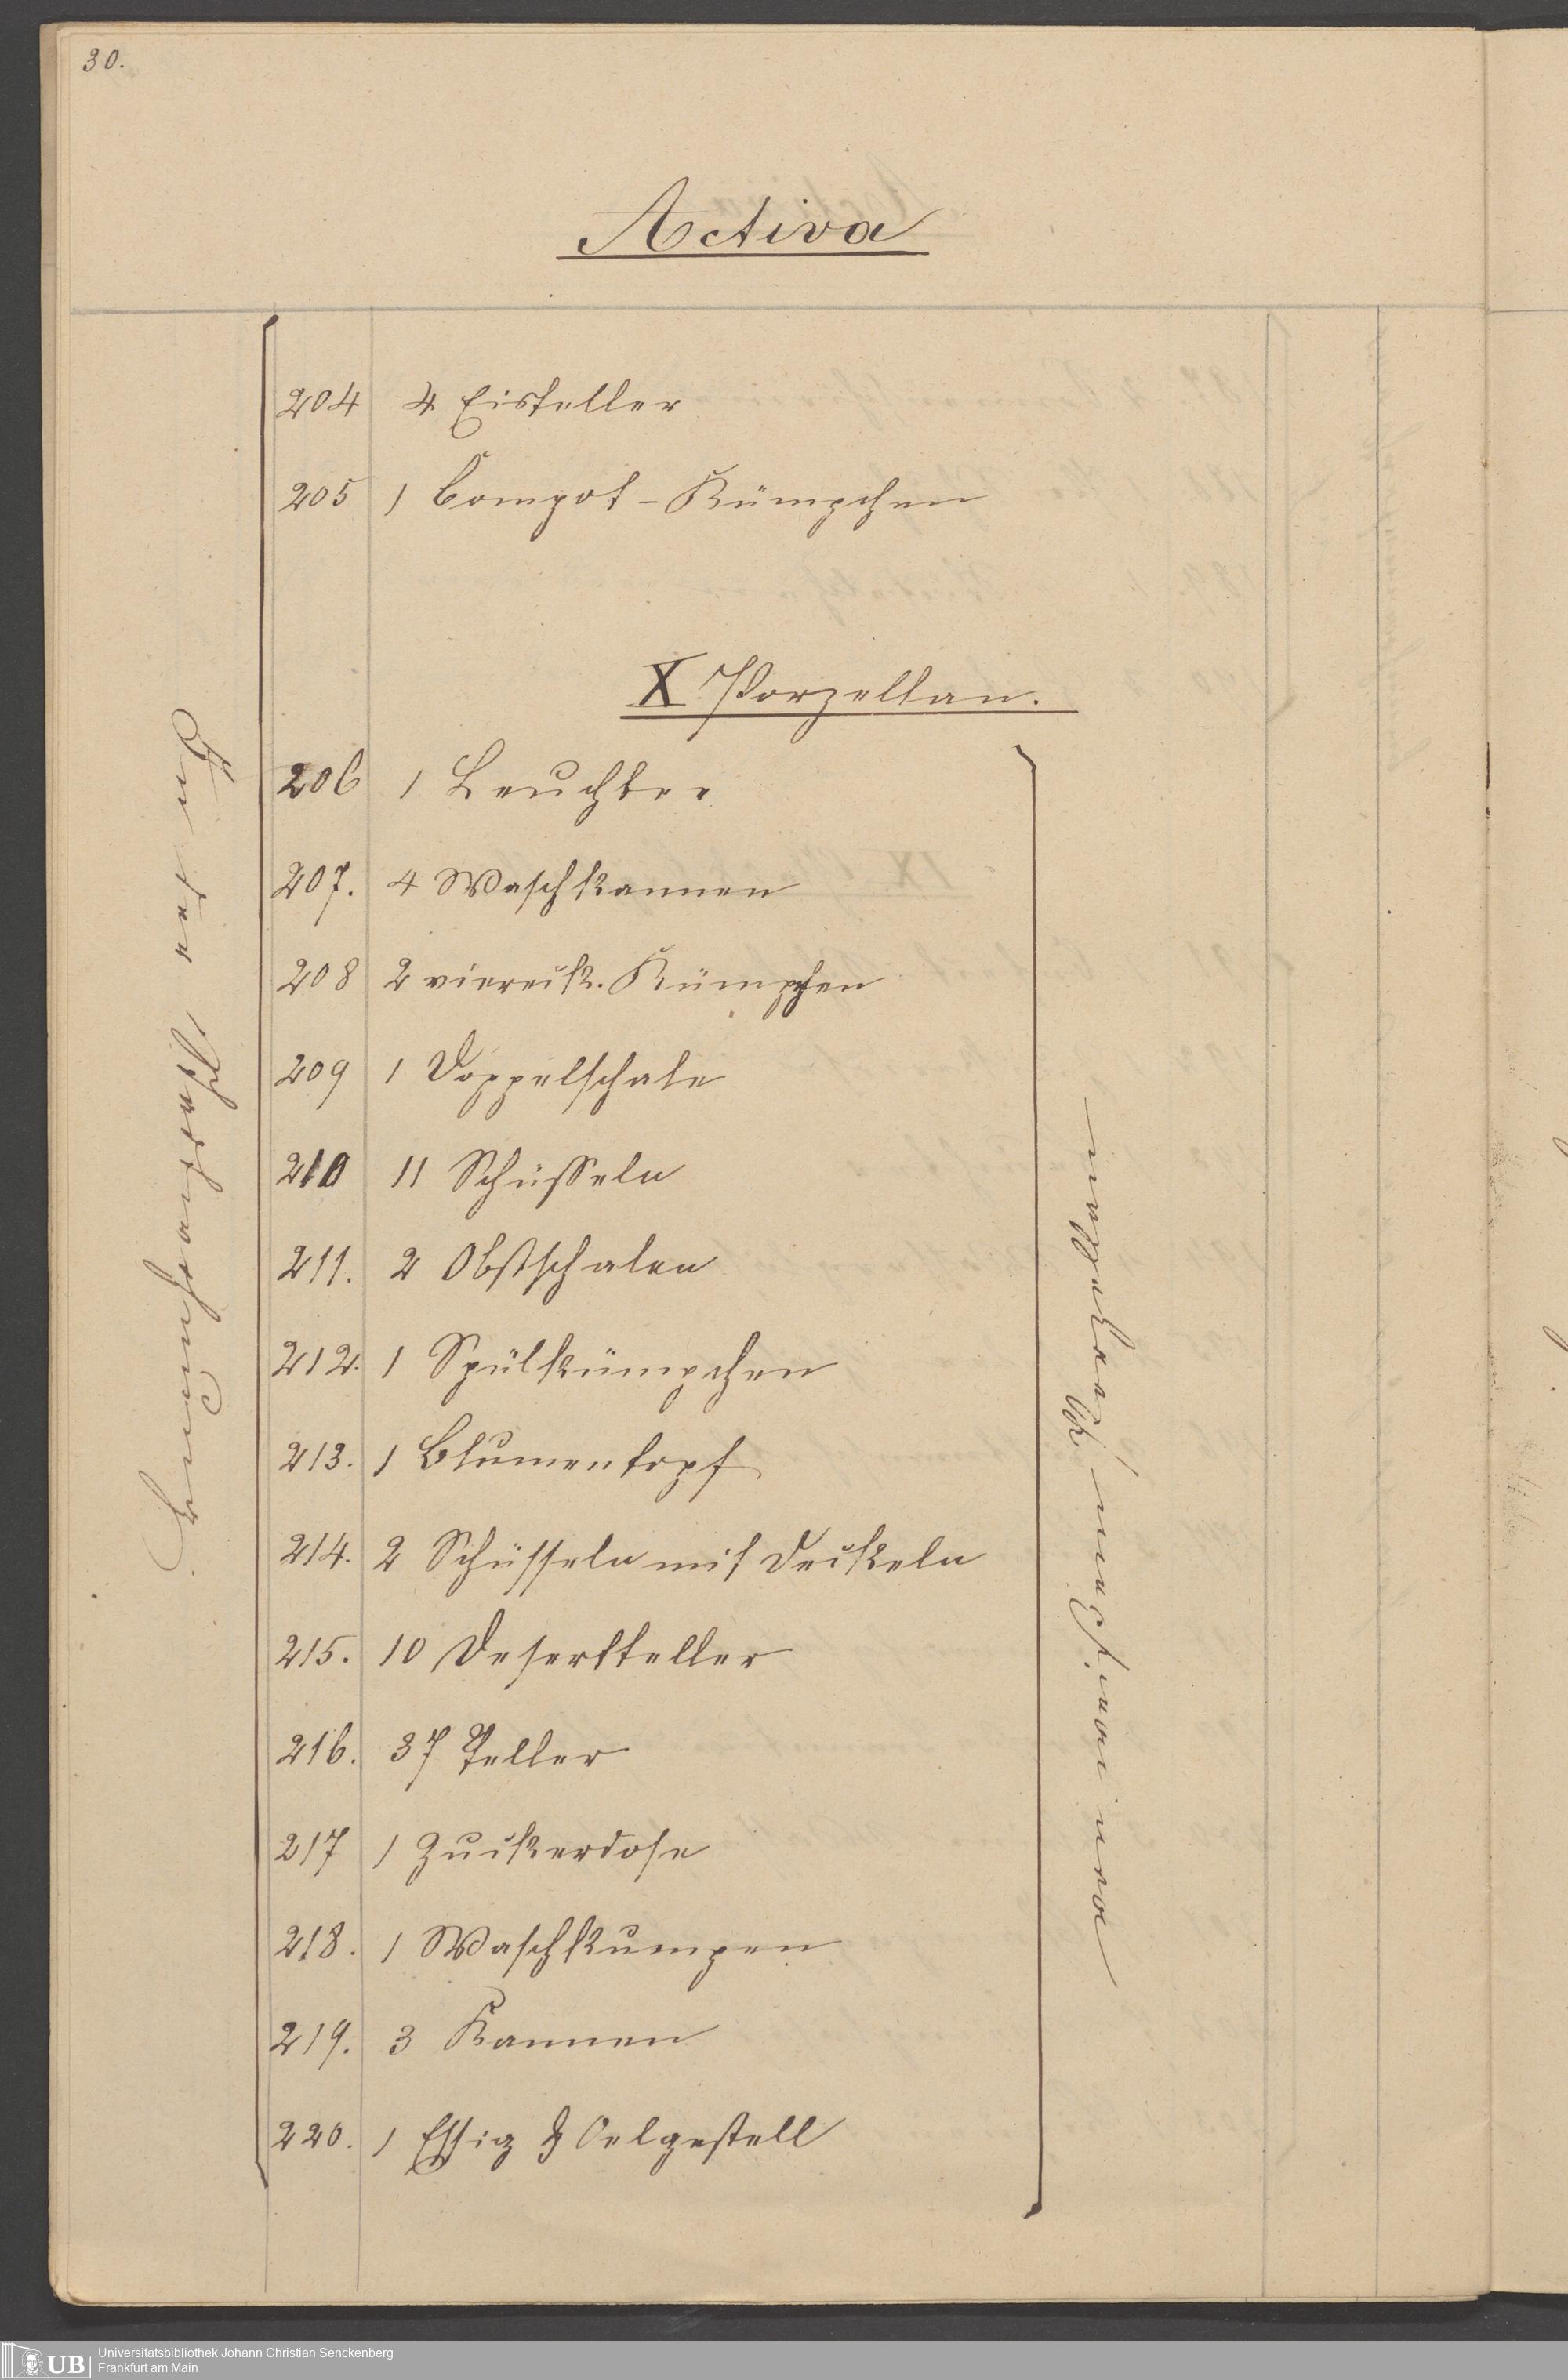 30.
Activa
In der Parkwohnung
204 4 Eisteller
205 1 Compot-Kümpchen
X Porzellan.
206 1 Leuchter
207. 4 Waschkannen
208 2 viereck. Kümpchen
209 1 Doppelschale
210 11 Schüsseln
211. 2 Obstschalen
212. 1 Spülkümpchen
213. 1 Blumentopf
214. 2 Schüsseln mit Deckeln
215. 10 Desertteller
216. 37 Teller
217 1 Zuckerdose
218. 1 Waschkumpen
219. 3 Kannen
220. 1 Essig & Oelgestell
von weißem Porzellan
Universitätsbibliothek Johann Christian Senckenberg
Frankfurt am Main
UB